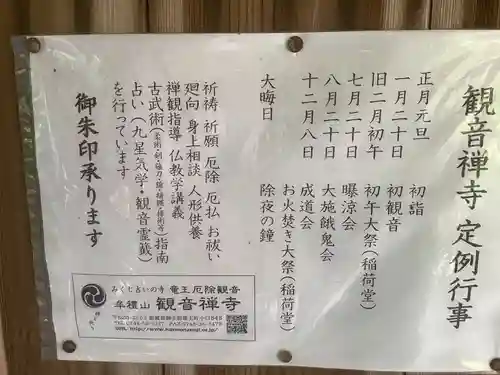 観音禅寺 定例行事
正月元旦 初詣
一月二十日 初観音
旧二月初午 初午大祭（稲荷堂）
七月二十日 曝涼会
八月二十日 大施餓鬼会
十二月八日 成道会
お火焚き大祭（稲荷堂）
大晦日 除夜の鐘
祈祷 祈願 厄除 厄払 お祓い
廻向 身上相談 人形供養
禅観指導 仏教学講義
古武術 指南
占い（九星気学・観音霊籤）
を行っています
御朱印承ります
みくじ占いの寺 竜王厄除観音
牟禮山 観音禅寺